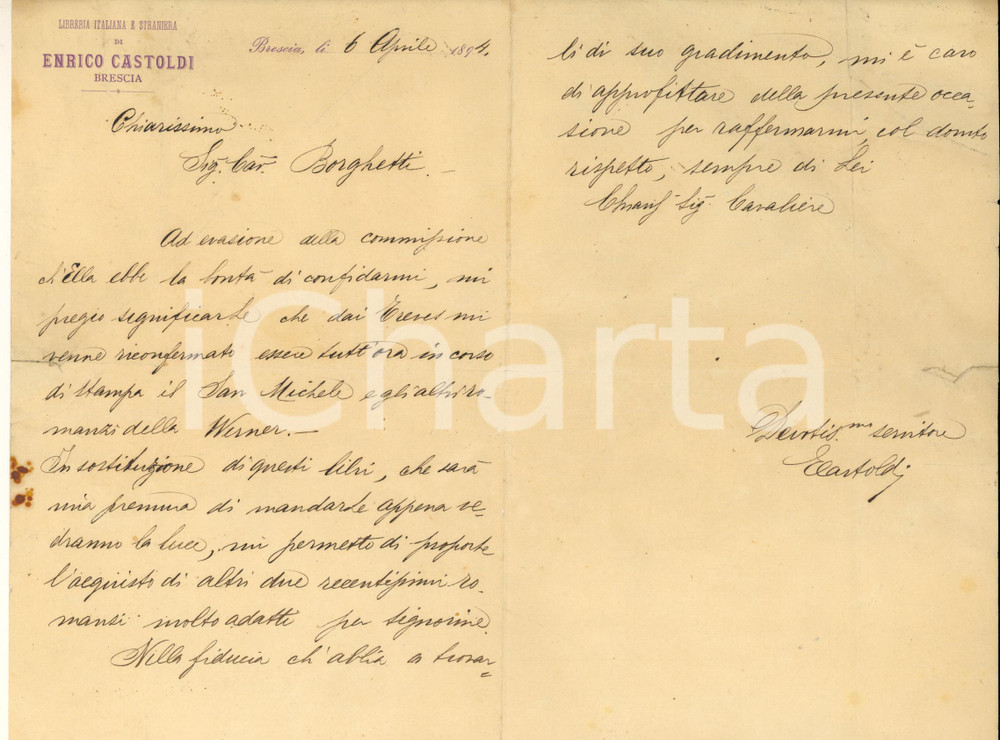 LIBRERIA ITALIANA E STRANIERA
DI
ENRICO CASTOLDI
BRESCIA
Brescia, li 6 Aprile 1894.
Chiarissimo
Sig. Cav. Borghetti. —
Ad evasione della commissione
ch'Ella ebbe la bontà di confidarmi, mi
pregio significarle che dai Treves mi
venne riconfermato essere tutt'ora in corso
di stampa il San Michele e gli altri ro-
manzi della Werner. —
In sostituzione di questi libri, che sarà
mia premura di mandarle appena ve-
dranno la luce, mi permetto di proporle
l'acquisto di altri due recentissimi ro-
manzi molto adatti per signorine.
Nella fiducia ch'abbia a trovar-
li di suo gradimento, mi è caro
di approfittare della presente occa-
sione per raffermarmi, col dovuto
rispetto, sempre di Lei
Sig. Cavaliere
Devotis.mo servitore
ECastoldi
iCharta